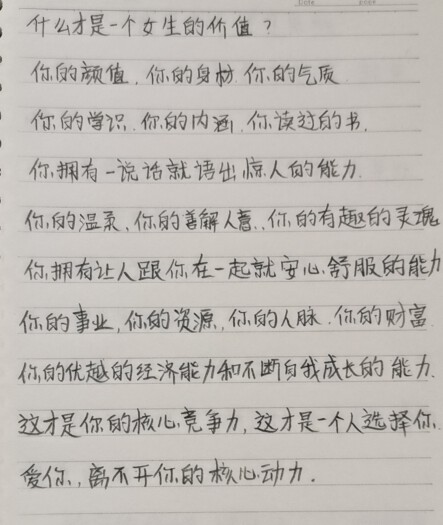 什么才是一个女生的价值？
你的颜值，你的身材 你的气质
你的学识．你的内涵，你读过的书，
你拥有一说话就语出惊人的能力．
你的温柔，你的善解人意，你的有趣的灵魂
你拥有让人跟你在一起就安心舒服的能力
你的事业，你的资源，你的人脉．你的财富
你的优越的经济能力和不断自我成长的能力．
这才是你的核心竞争力，这才是一个人选择你，
爱你，离不开你的核心动力．